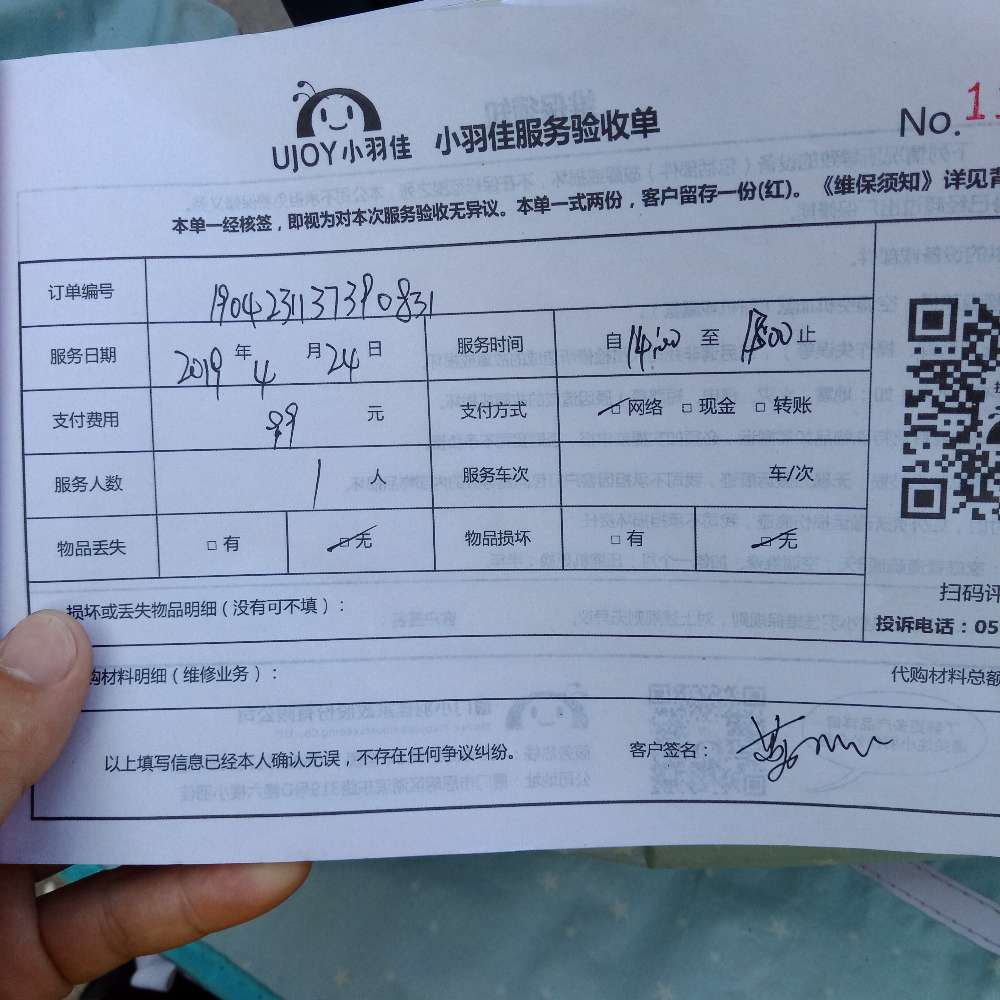 UJOY小羽佳 小羽佳服务验收单 No.
本单一经核签，即视为对本次服务验收无异议。本单一式两份，客户留存一份(红)。《维保须知》详见背
订单编号 1904231137390831
服务日期 2019 年 4 月 24 日 服务时间 自 14:00 至 止
支付费用 89 元 支付方式 □网络 □现金 □转账
服务人数 1 人 服务车次 车/次
物品丢失 □有 □无 物品损坏 □有 □无
扫码评
损坏或丢失物品明细（没有可不填）：
投诉电话：05
购材料明细（维修业务）： 代购材料总额
以上填写信息已经本人确认无误，不存在任何争议纠纷。 客户签名：